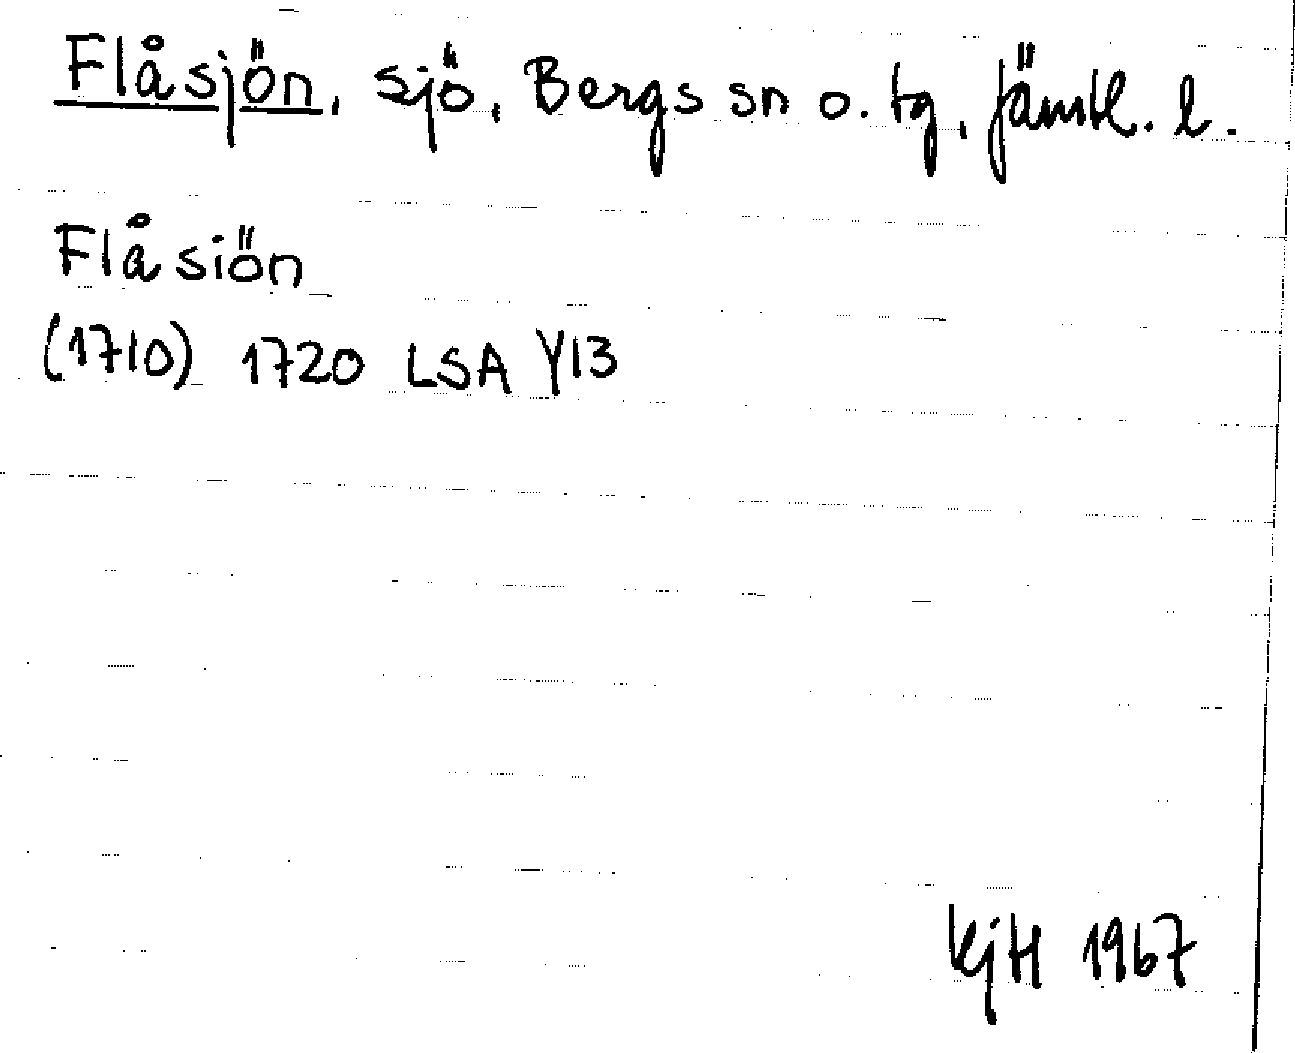 Flåsjön, sjö, Bergs sn o. tg, Jämtl. l.
Flåsiön
(1710) 1720 LSA Y13
KjH 1967